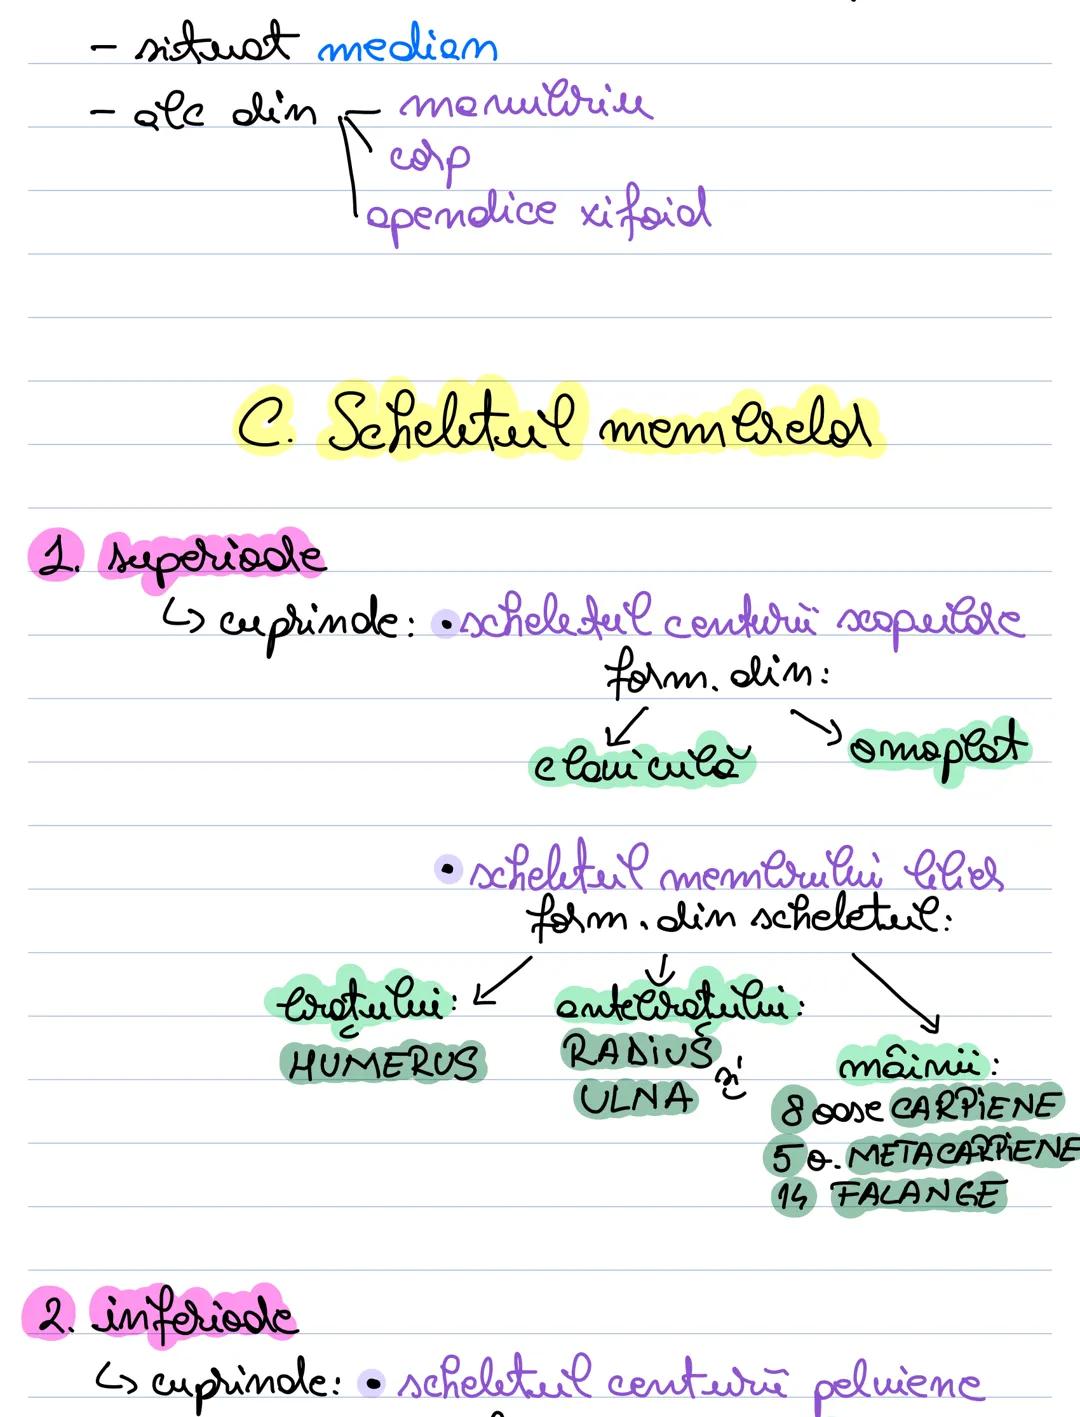 - situat median
- alc din - manubriu
corp
apendice xifoid
C. Scheletul membrelor
1. superioare
↳ cuprinde: • scheletul centurii scapulare
form. din:
claviculă
omoplat
• scheletul membrului liber
form. din scheletul:
brațului: antebrațului:
HUMERUS RADIUS și mâinii:
ULNA
8 oase CARPIENE
5 o. METACARPIENE
14 FALANGE
2. inferioare
↳ cuprinde: • scheletul centurii pelviene